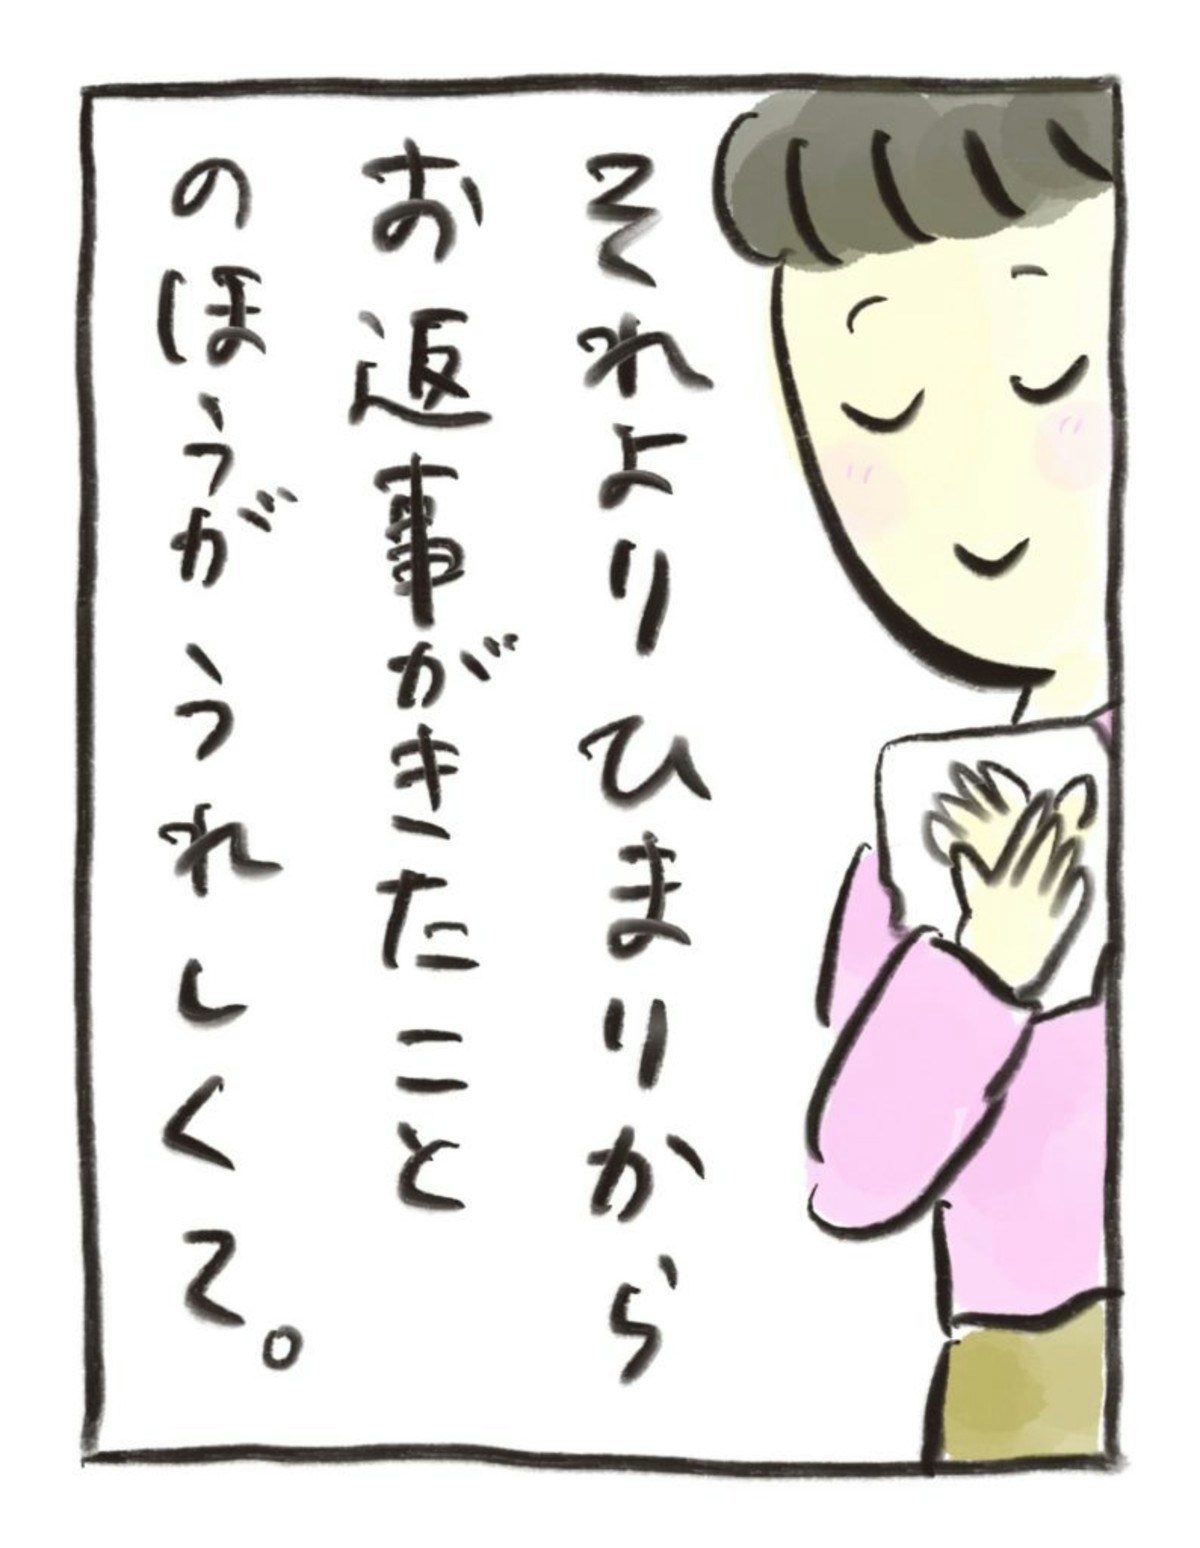 それよりひまりから
お返事がきたこと
のほうがうれしくて。